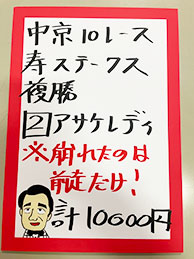 中京10レース
寿ステークス
複勝
2アサケレディ
※崩れたのは
前走だけ!
計10600円